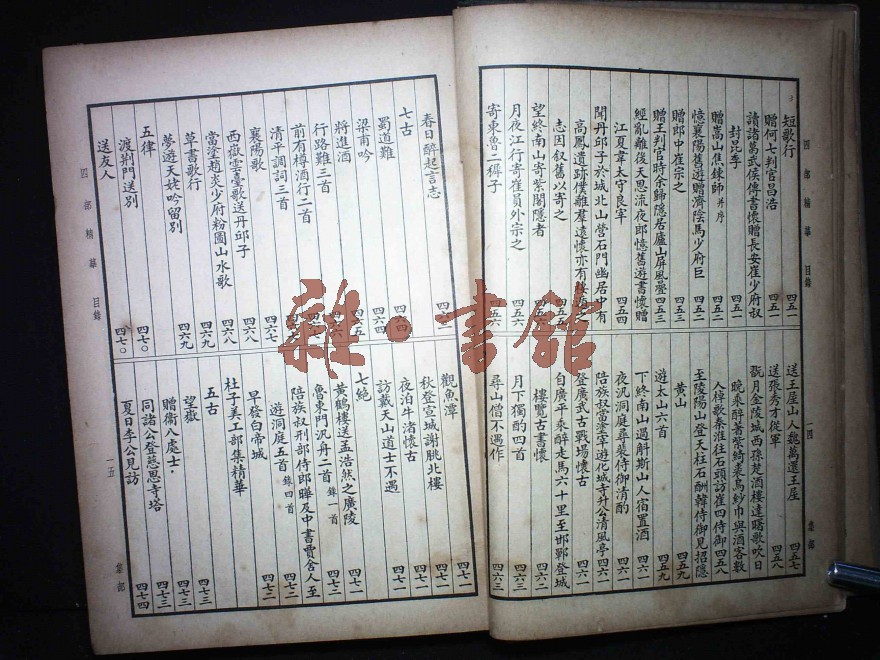 四部精華 目錄
一四
集部
短歌行 四五一
贈何七判官昌浩 四五一
讀諸葛武侯傳書懷贈長安崔少府叔
封昆季 四五一
贈嵩山焦鍊師并序 四五二
憶襄陽舊遊贈濟陰馬少府巨 四五二
贈郎中崔宗之 四五三
贈王判官時余歸隱居廬山屏風疊 四五三
經亂離後天恩流夜郎憶舊遊書懷贈
江夏韋太守良宰 四五四
聞丹邱子於城北山營石門幽居中有
高鳳遺跡僕離羣遠懷亦有棲遁之
志因叙舊以寄之
望終南山寄紫閣隱者
月夜江行寄崔員外宗之 四五六
寄東魯二穉子 四五六
送王屋山人魏萬還王屋 四五七
送張秀才從軍 四五八
翫月金陵城西孫楚酒樓達曙歌吹日
晚乘醉著紫綺裘烏紗巾與酒客數
人棹歌秦淮往石頭訪崔四侍御 四五八
至陵陽山登天柱石酬韓侍御見招隱
黃山 四五九
遊太山六首 四五九
下終南山過斛斯山人宿置酒 四六一
夜汎洞庭尋裴侍御清酌 四六一
陪族叔當塗宰遊化城寺升公清風亭 四六一
登廣武古戰場懷古 四六一
自廣平乘醉走馬六十里至邯鄲登城
樓覽古書懷 四六二
月下獨酌四首 四六二
尋山僧不遇作 四六三
春日醉起言志
七古
蜀道難
梁甫吟 四六四
將進酒
行路難三首
前有樽酒行二首
清平調詞三首
襄陽歌 四六七
西嶽雲臺歌送丹邱子 四六八
當塗趙炎少府粉圖山水歌 四六八
草書歌行 四六九
夢遊天姥吟留別 四六九
五律
渡荆門送別 四七〇
送友人 四七〇
觀魚潭 四七一
秋登宣城謝朓北樓 四七一
夜泊牛渚懷古 四七一
訪戴天山道士不遇 四七一
七絶
黃鶴樓送孟浩然之廣陵 四七二
魯東門汎舟二首錄一首 四七二
陪族叔刑部侍郎曄及中書賈舍人至
遊洞庭五首錄四首 四七二
早發白帝城
杜子美工部集精華
五古
望嶽 四七三
贈衛八處士 四七三
同諸公登慈恩寺塔 四七四
夏日李公見訪 四七四
四部精華 目錄
一五
集部
雜·書館